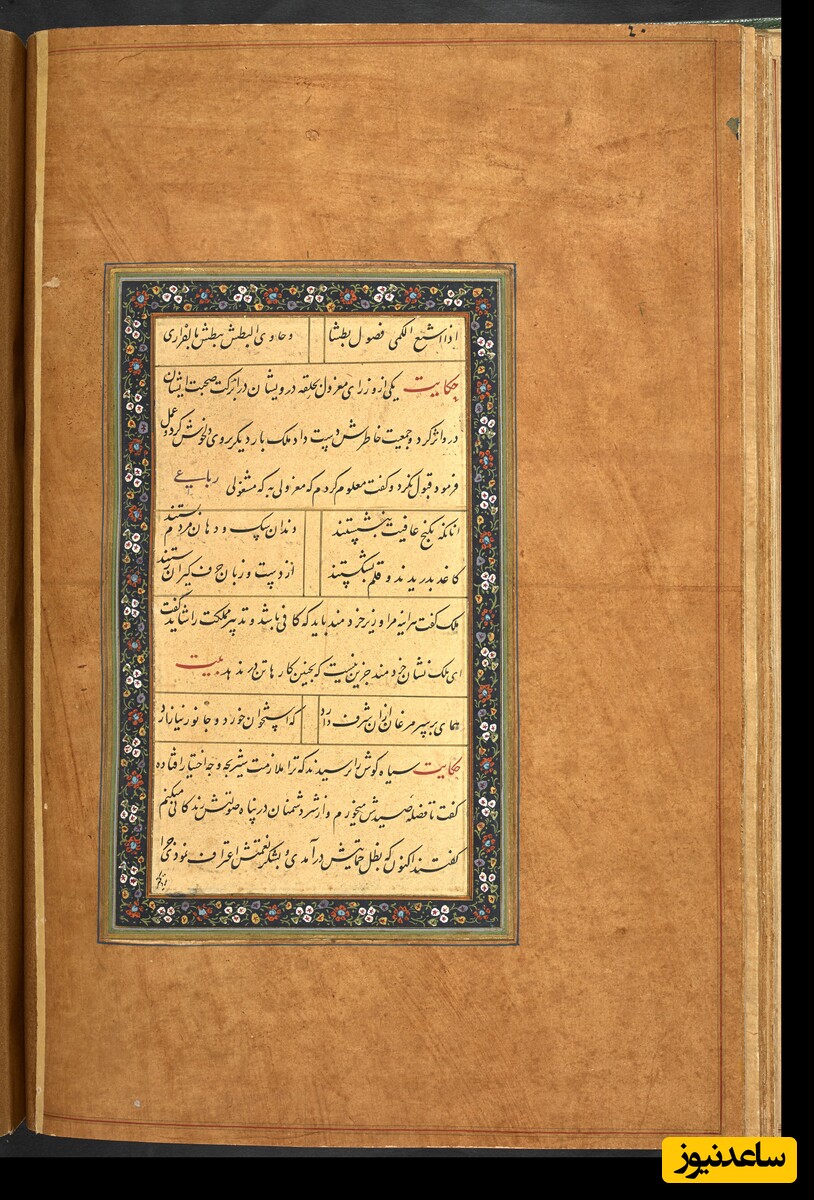 ۲۰
اذا شبع الکمی یصول بطشا و خاوی البطش یبطش بالفراری
حکایت یکی از وزرای معزول بحلقه درویشان درآمد برکت صحبت ایشان
در او اثر کرد و جمعیت خاطرش دست داد ملک بار دیگر بر وی دل خوش کرد و عمل
فرمود قبول نکرد و گفت معلوم کردم که معزولی به که مشغولی رباعی
آنانکه بکنج عافیت بنشستند دندان سگ و دهان مردم بستند
کاغذ بدریدند و قلم بشکستند از دست و زبان حرف گیران رستند
ملک گفت هرآینه مرا وزیر خردمند باید که کافی باشد و تدبیر مملکت را شاید گفت
ای ملک نشان خردمند جز این نیست که بچنین کارها تن در ندهد بیت
همای بر سر مرغان از آن شرف دارد که استخوان خورد و جانور نیازارد
حکایت سیاه گوش را پرسیدند که ترا ملازمت شیر بچه وجه اختیار افتاده
گفت تا فضله صیدش میخورم و از شر دشمنان در پناه صولتش زندگانی میکنم
گفتند اکنون که بظل حمایتش درآمدی و بشکر نعمتش اعتراف نمودی چرا
ساعدنیوز